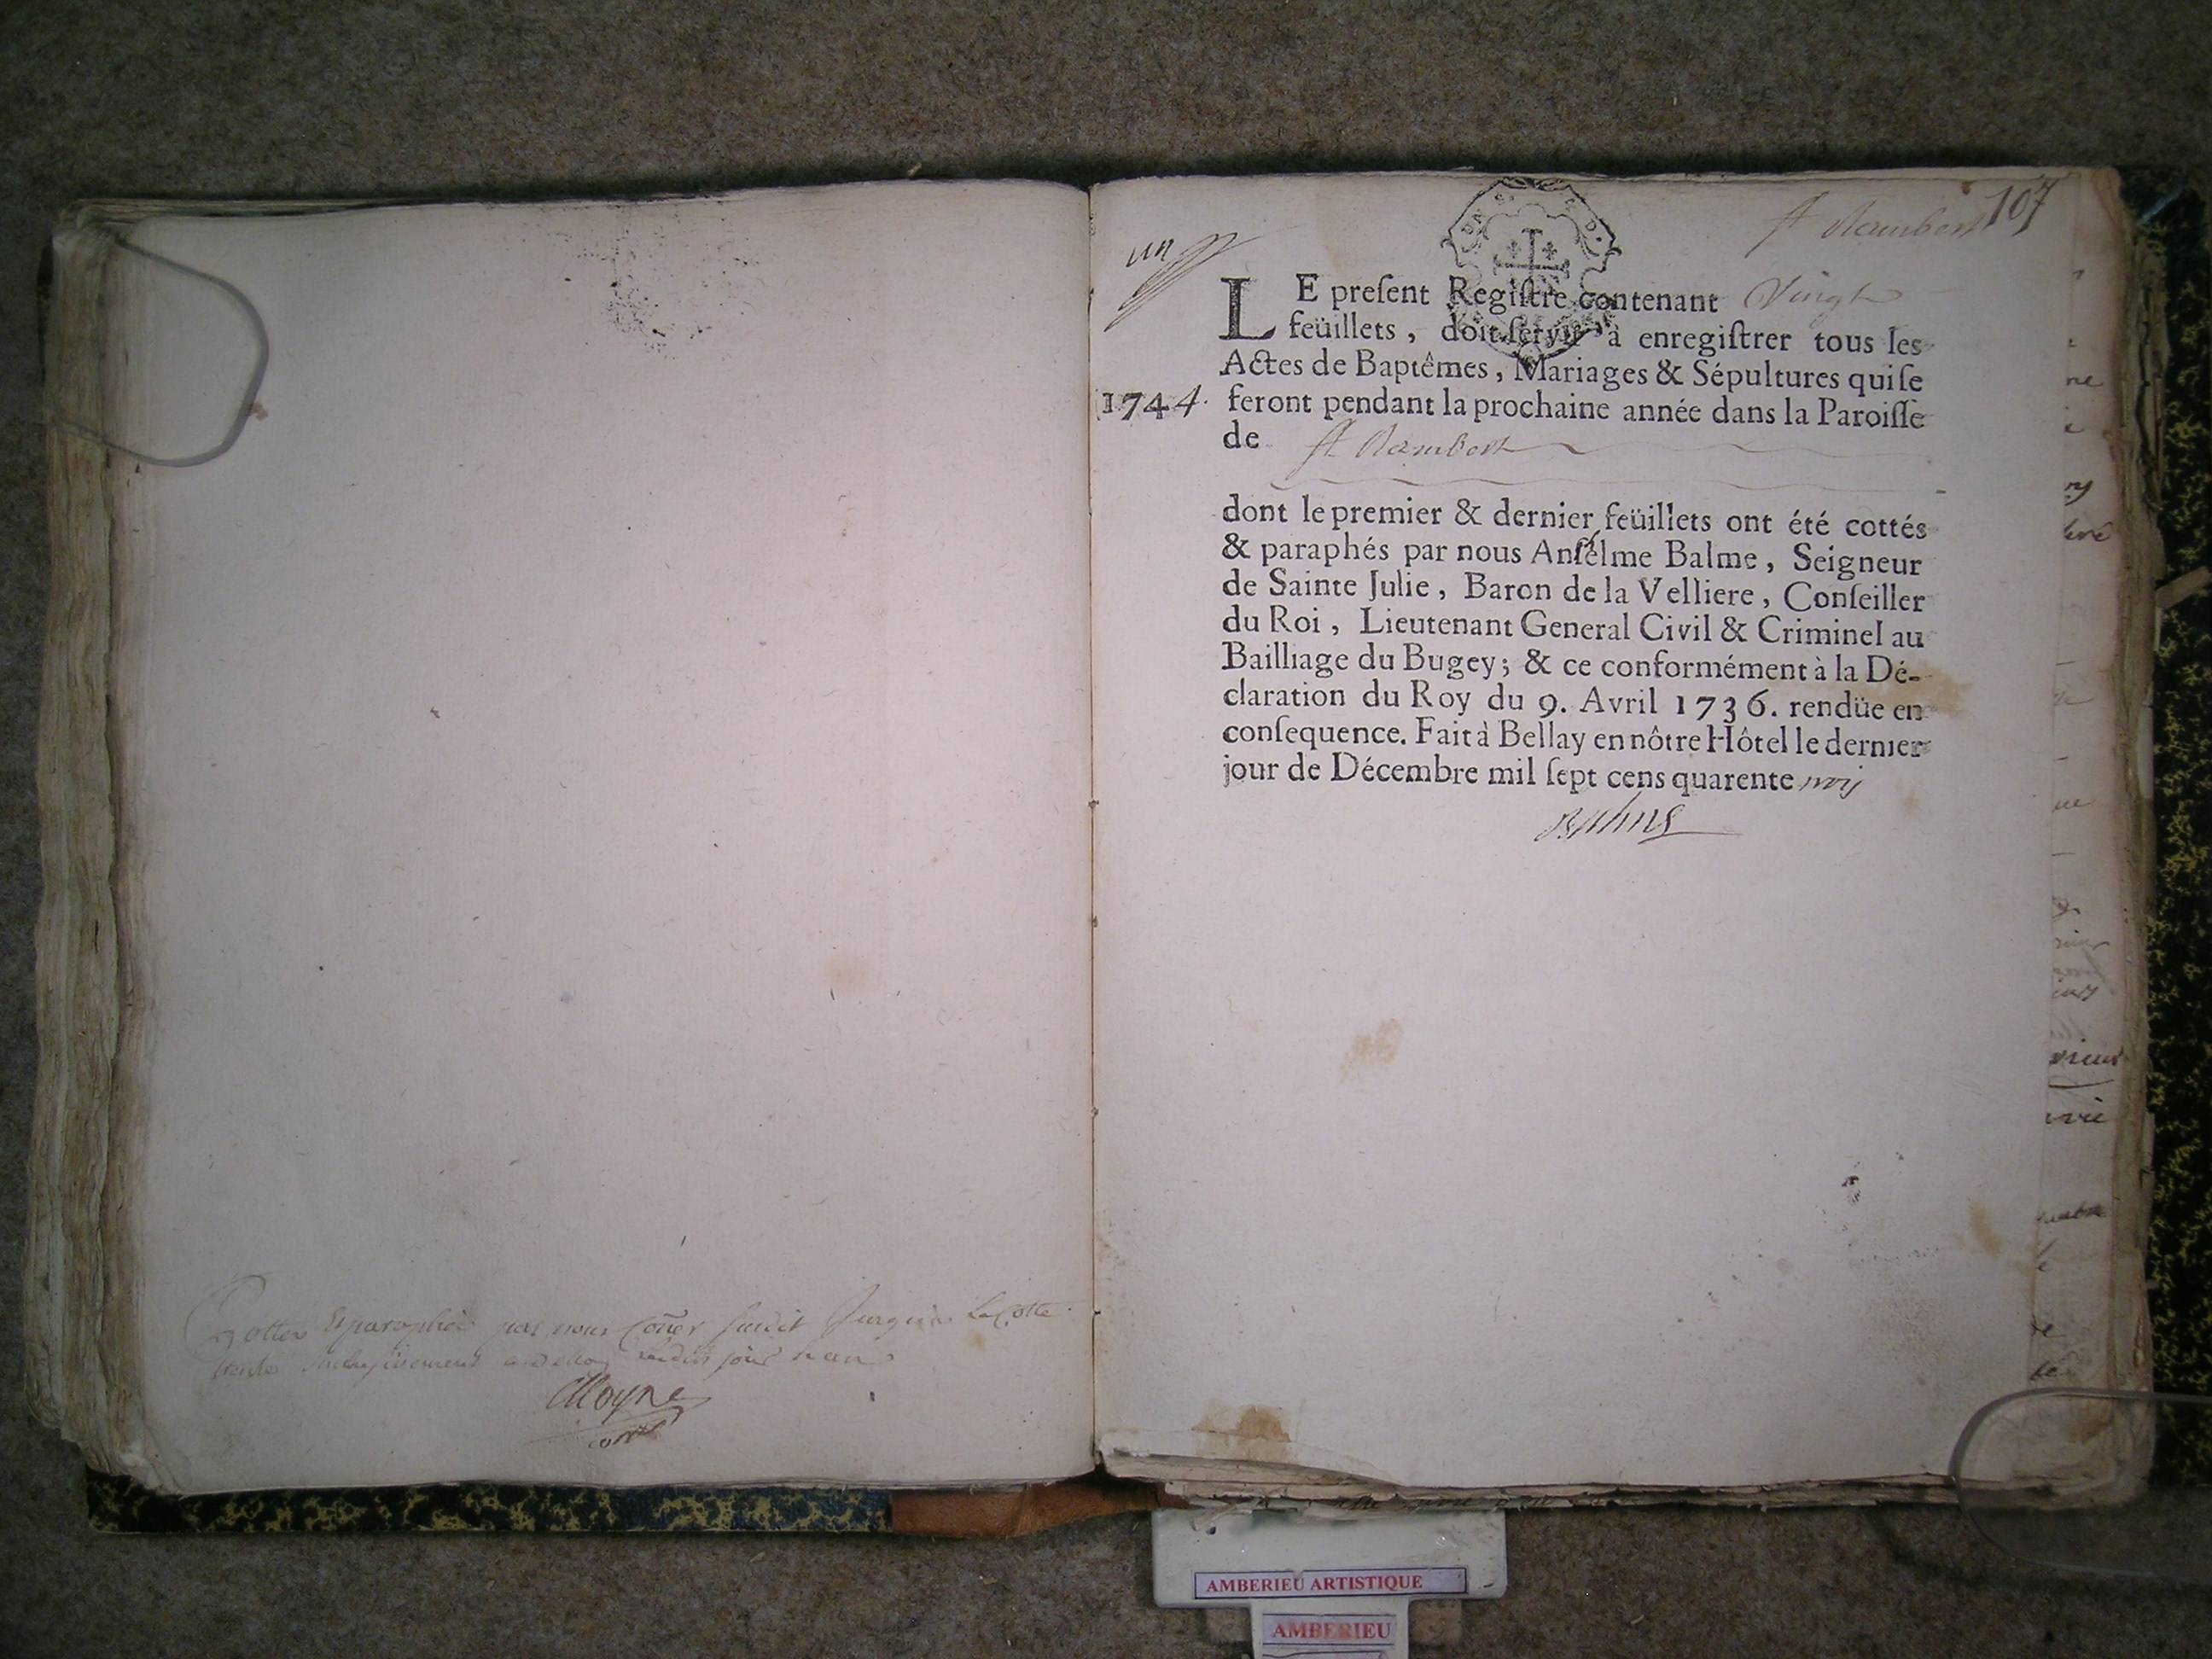 Cottés & paraphé par nous Coner susdit jusqu'a La Cotte
trente inclusivement a Belley lesdits jour & an
Moyne
107
St Rambert
un
LE preſent Regiſtre contenant Vingt
feüillets, doit ſervir à enregiſtrer tous les
Actes de Baptêmes, Mariages & Sépultures qui ſe
1744. feront pendant la prochaine année dans la Paroiſſe
de St Rambert
dont le premier & dernier feüillets ont été cottés
& paraphés par nous Anſelme Balme, Seigneur
de Sainte Julie, Baron de la Velliere, Conſeiller
du Roi, Lieutenant General Civil & Criminel au
Bailliage du Bugey; & ce conformément à la Dé-
claration du Roy du 9. Avril 1736. rendüe en
conſequence. Fait à Bellay en nôtre Hôtel le dernier
jour de Décembre mil ſept cens quarente trois
Balme
AMBERIEU ARTISTIQUE
AMBERIEU